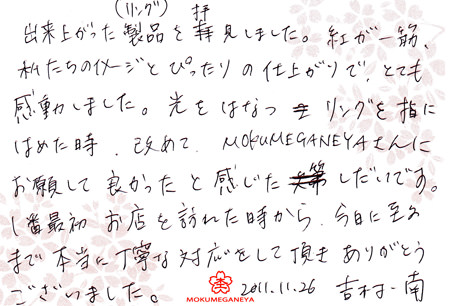 (リング) 拝
出来上がった製品を拝見しました。紅が一筋、
私たちのイメージとぴったりの仕上がりで、とても
感動しました。光をはなつリングを指に
はめた時、改めて、MOKUMEGANEYAさんに
お願して良かったと感じたしだいです。
1番最初お店を訪れた時から、今日に至る
まで本当に丁寧な対応をして頂きありがとう
ございました。 2011.11.26 吉村・南
MOKUMEGANEYA